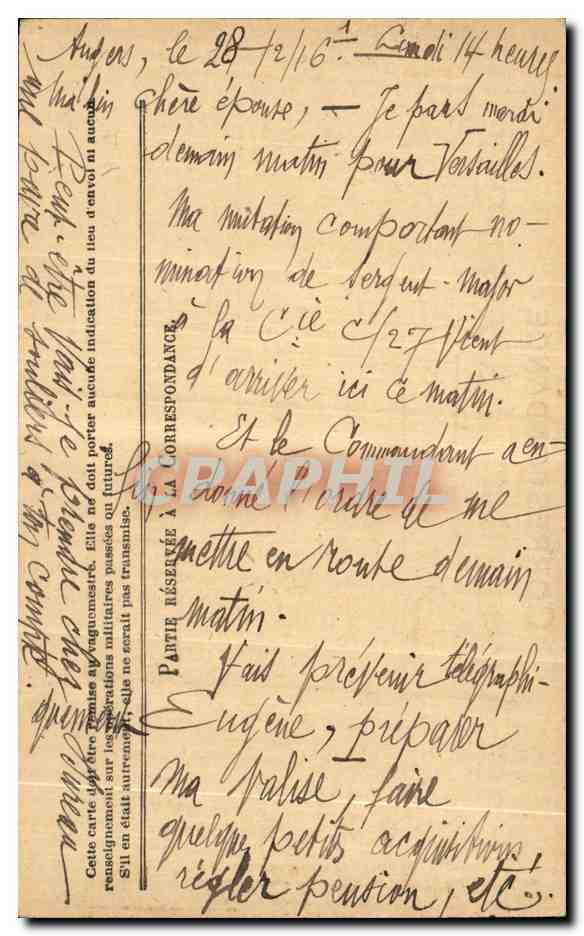 Angers, le 28/2/16. Lundi 14 heures
Ma bien chère épouse, — Je pars mardi
demain matin pour Versailles.
Ma mutation comportant no-
mination de sergent-major
à la Cie C/27 vient
d'arriver ici ce matin.
Et le Commandant a en-
donné l'ordre de me
mettre en route demain
matin.
Vais prévenir télégraphi-
quement Eugène, préparer
ma valise, faire
quelque petits acquisitions,
régler pension, etc!.
Peut-être vais-je prendre chez
une paire de souliers à mon compte.
PARTIE RÉSERVÉE À LA CORRESPONDANCE.
Cette carte doit être remise au vaguemestre. Elle ne doit porter aucune indication du lieu d'envoi ni aucun
renseignement sur les opérations militaires passées ou futures.
S'il en était autrement, elle ne serait pas transmise.
CPAPHIL